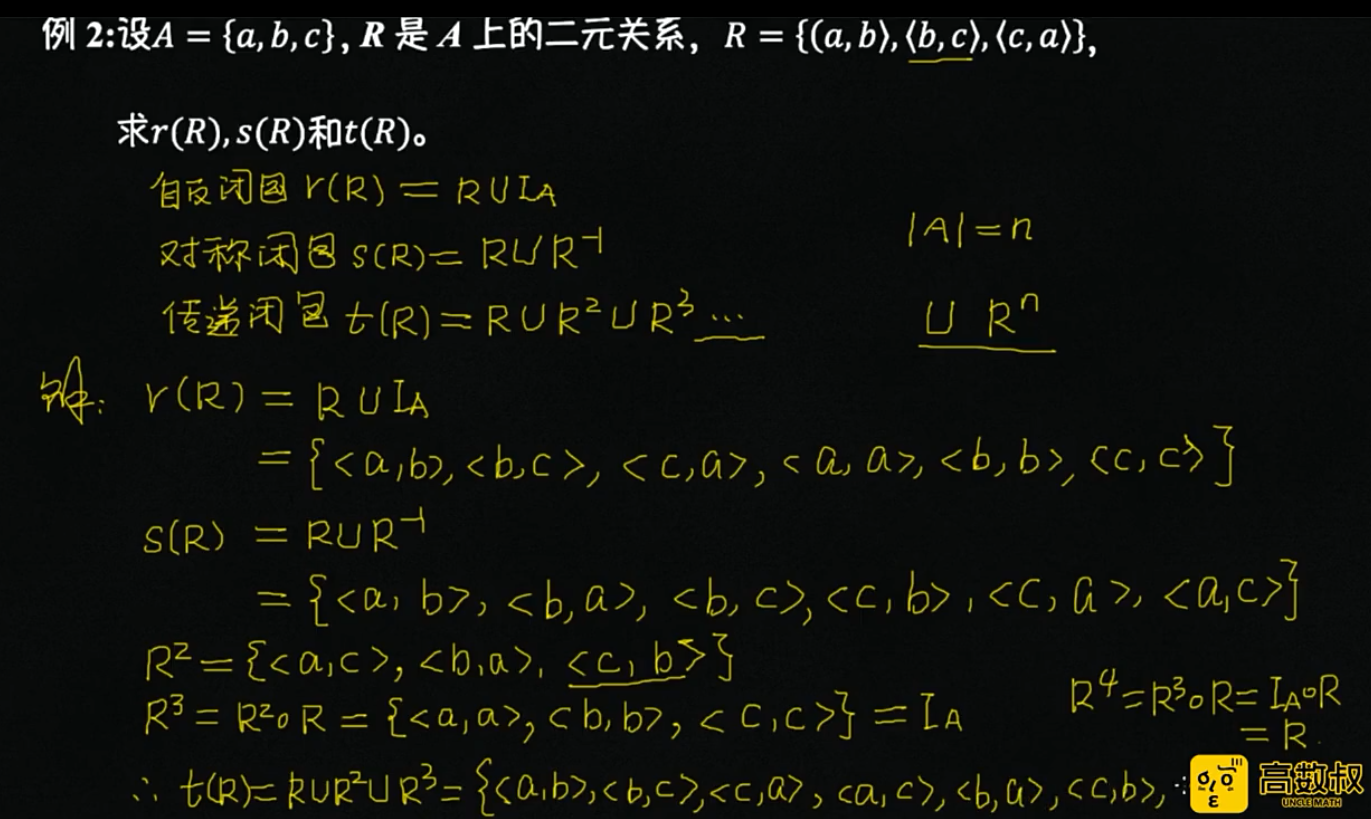 例 2:设A = {a, b, c}, R 是 A 上的二元关系, R = {(a, b⟩, ⟨b, c⟩, ⟨c, a⟩},
求r(R), s(R)和t(R)。
自反闭包 r(R) = R∪I_A
对称闭包 s(R) = R∪R⁻¹
|A| = n
传递闭包 t(R) = R∪R²∪R³ ...
∪ Rⁿ
解: r(R) = R∪I_A
= {<a,b>, <b,c>, <c,a>, <a,a>, <b,b>, <c,c>}
s(R) = R∪R⁻¹
= {<a,b>, <b,a>, <b,c>, <c,b>, <c,a>, <a,c>}
R² = {<a,c>, <b,a>, <c,b>}
R³ = R²∘R = {<a,a>, <b,b>, <c,c>} = I_A
R⁴ = R³∘R = I_A∘R
= R.
∴ t(R) = R∪R²∪R³ = {<a,b>, <b,c>, <c,a>, <a,c>, <b,a>, <c,b>,
高数叔
UNCLE MATH